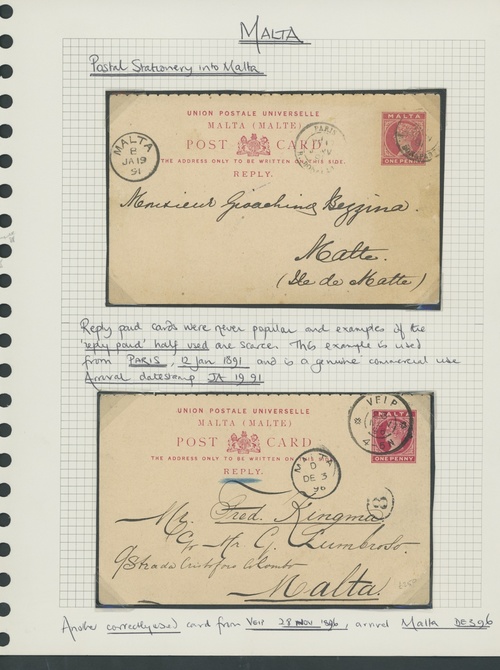 MALTA
Postal Stationery into Malta
UNION POSTALE UNIVERSELLE
MALTA (MALTE)
POST CARD
THE ADDRESS ONLY TO BE WRITTEN ON THIS SIDE.
REPLY.
MALTA
ONE PENNY
PARIS
MALTA
B
JA 19
91
Monsieur Gioaching Bezzina.
Malte.
(Ile de Malte)
Reply paid cards were never popular and examples of the
'reply paid' half used are scarce. This example is used
from PARIS, 12 Jan 1891 and is a genuine commercial use
Arrival datestamp JA 19 91
UNION POSTALE UNIVERSELLE
MALTA (MALTE)
POST CARD
THE ADDRESS ONLY TO BE WRITTEN ON THIS
REPLY.
ONE PENNY
VEIP
MALTA
D
DE 3
96
Mr. Fred. Kingma.
c/o Mr. G. Lumbroso.
9 Strada Cristoforo Colombo
Malta.
Another correctly used card from VEIP 28 NOV 1896, arrival Malta DE 3 96